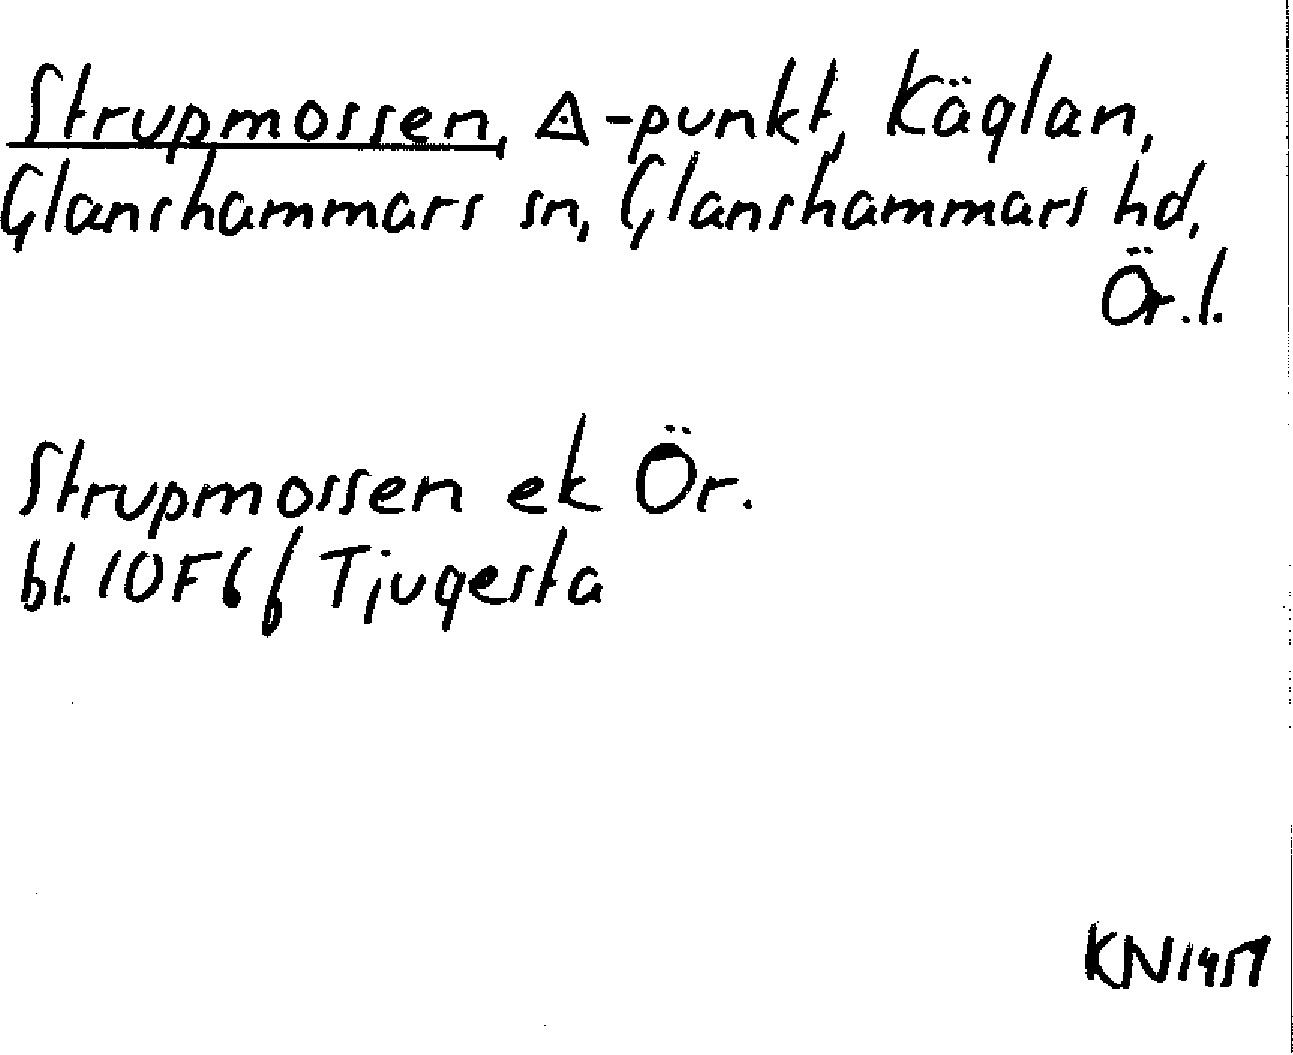 Strupmossen, △-punkt, Käglan,
Glanshammars sn, Glanshammars hd,
Ör.l.
Strupmossen ek Ör.
bl. 10F6f Tjugesta